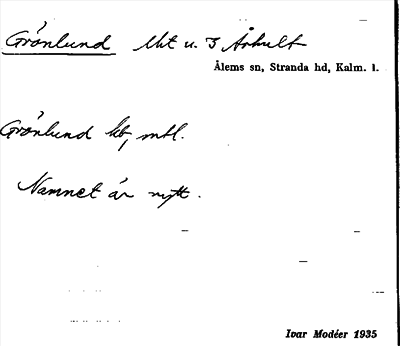 Grönlund lht u. 3 Århult
Ålems sn, Stranda hd, Kalm. l.
Grönlund kb, mtl.
Namnet är nytt.
Ivar Modéer 1935